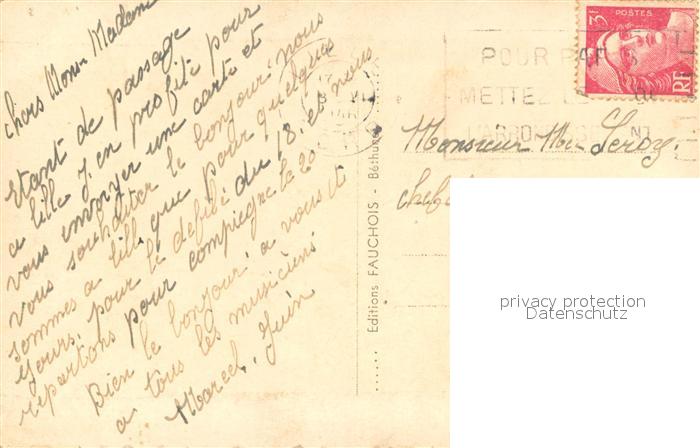 chers Mons Madame
etant de passage
a lille j'en profite pour
vous envoyer une carte et
vous souhaiter le bonjour, nous
sommes a lille que pour quelques
jours, pour le defilé du 18, et nous
repartons pour compiegne le 20
Bien le bonjour a vous et
a tous les musiciens
Marcel
Editions FAUCHOIS - Béthune
3F
POSTES
RF
POUR PARIS
METTEZ LE
L'ARRONDISSEMENT
Monsieur
chef
privacy protection
Datenschutz